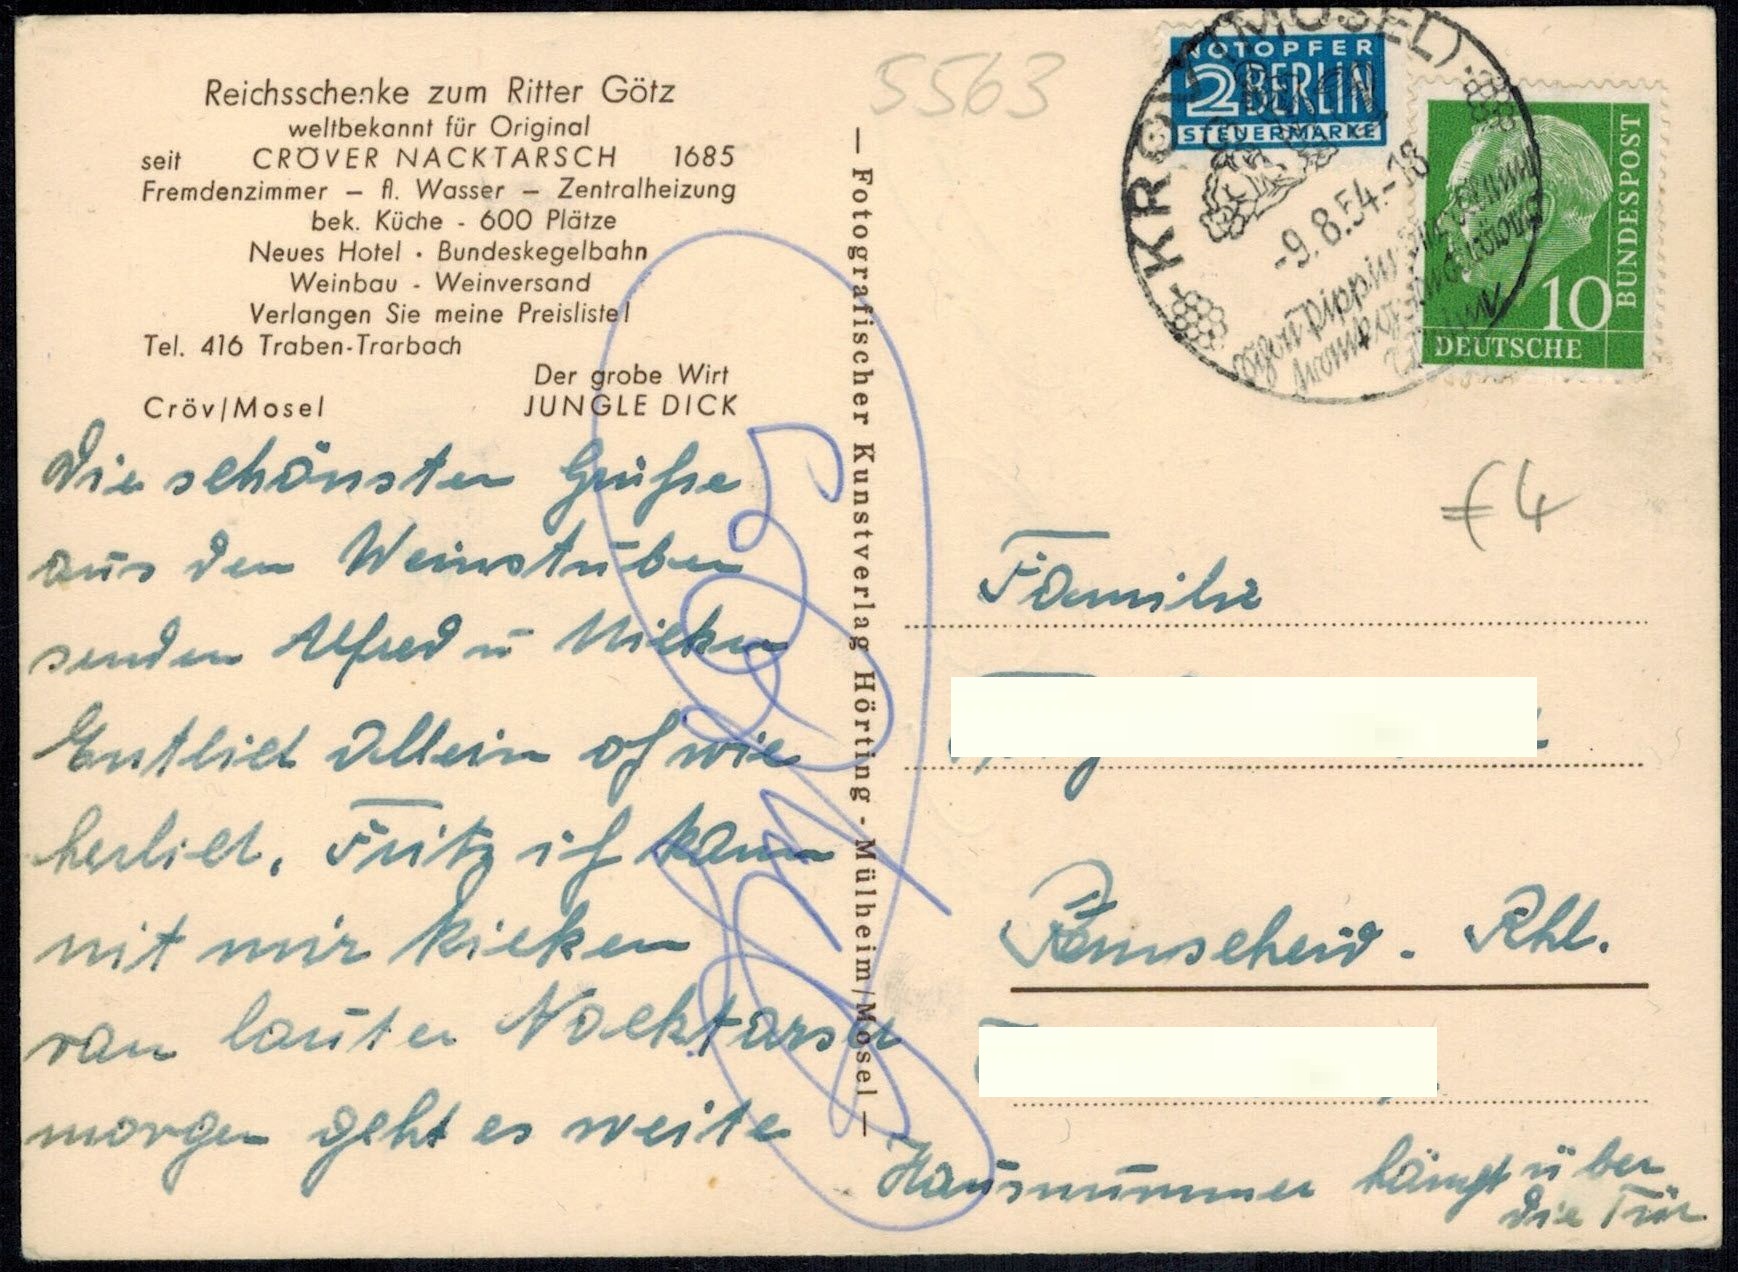 Reichsschenke zum Ritter Götz
weltbekannt für Original
seit CRÖVER NACKTARSCH 1685
Fremdenzimmer – fl. Wasser – Zentralheizung
bek. Küche - 600 Plätze
Neues Hotel · Bundeskegelbahn
Weinbau - Weinversand
Verlangen Sie meine Preisliste!
Tel. 416 Traben-Trarbach
Der grobe Wirt
Cröv/Mosel JUNGLE DICK
Die schönsten Grüße
aus den Weinstuben
senden Alfred u
Allein
Fritz kann
nit mir kieken
van lauter Nacktarsch
morgen geht es weite
— Fotografischer Kunstverlag Hörting - Mülheim/Mosel —
5563
NOTOPFER
2 BERLIN
STEUERMARKE
KRÖV (MOSEL)
-9.8.54.-18
10
DEUTSCHE
BUNDESPOST
€4
Familie
Remscheid - Rhl.
Hausnummer hängt über
die Tür